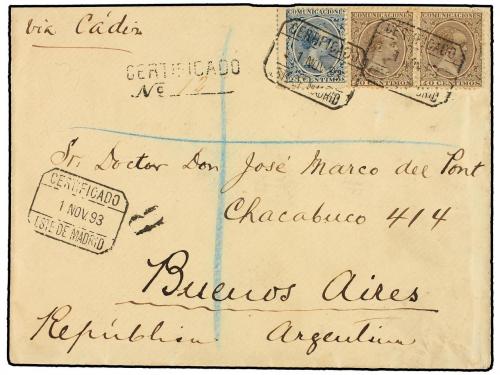 via Cádiz
COMUNICACIONES COMUNICACIONES COMUNICACIONES
25 CENTIMOS 40 CENTIMOS 40 CENTIMOS
CERTIFICADO CERTIFICADO
1 NOV. 93
MADRID MADRID
CERTIFICADO
Nº
Sr. Doctor Don José Marco del Pont
Chacabuco 414
CERTIFICADO
1 NOV. 93
ESTE DE MADRID
Buenos Aires
República Argentina